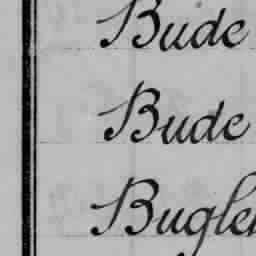 Bude
Bude
Bugle